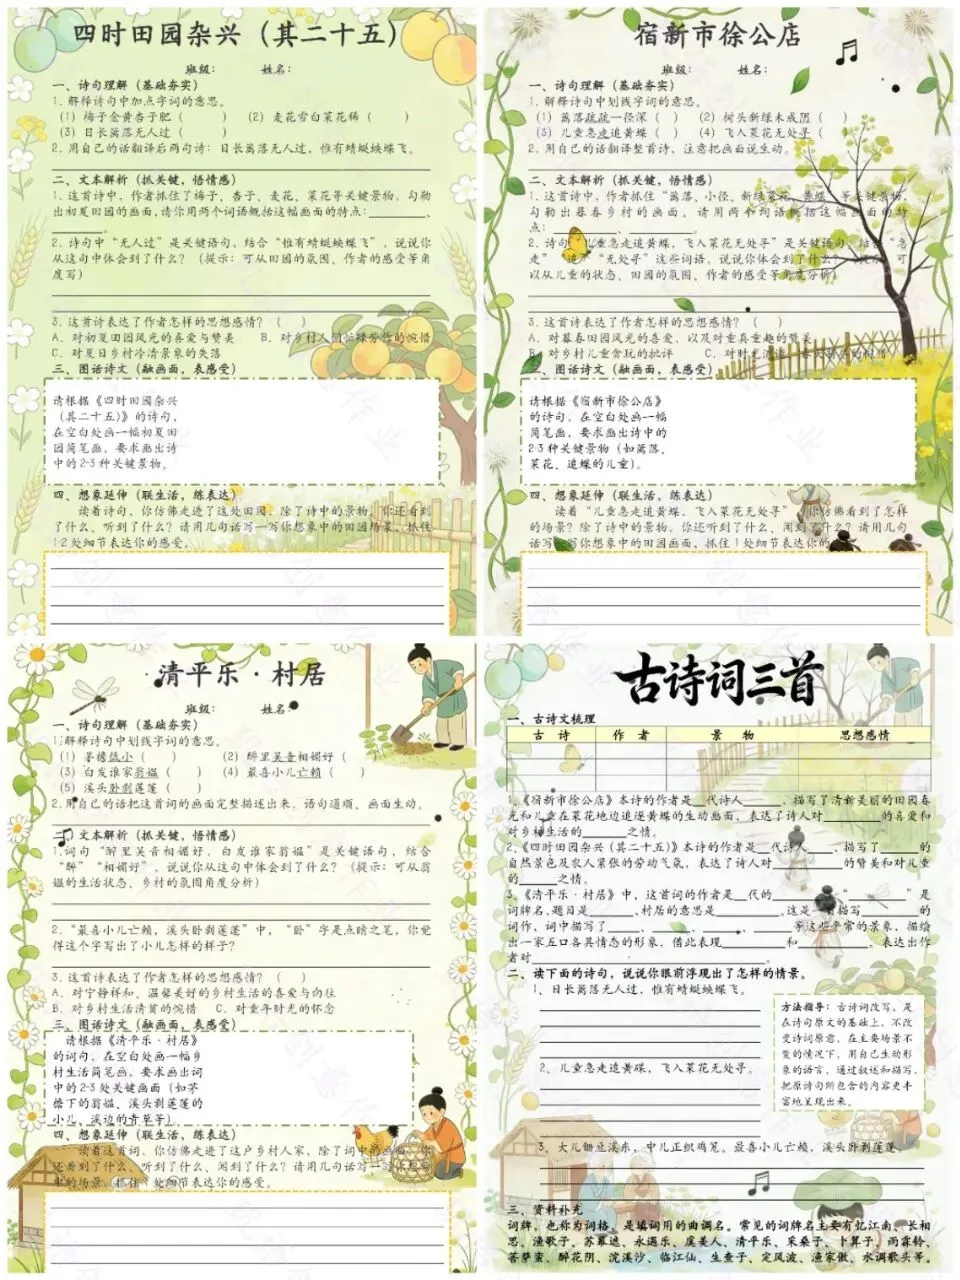 四时田园杂兴（其二十五）
班级：　　姓名：
一、诗句理解（基础夯实）
1. 解释诗句中加点字词的意思。
（1）梅子金黄杏子肥（　　）　（2）麦花雪白菜花稀（　　）
（3）日长篱落无人过（　　）
2. 用自己的话翻译后两句诗：日长篱落无人过，惟有蜻蜓蛱蝶飞。
二、文本解析（抓关键，悟情感）
1. 这首诗中，作者抓住了梅子、杏子、麦花、菜花等关键景物，勾勒
出初夏田园的画面，请你用两个词语概括这幅画面的特点：______、
______。
2. 诗句中“无人过”是关键语句，结合“惟有蜻蜓蛱蝶飞”，说说你
从这句中体会到了什么？（提示：可从田园的氛围、作者的感受等角
度写）
3. 这首诗表达了作者怎样的思想感情？（　）
A. 对初夏田园风光的喜爱与赞美　B. 对乡村人们忙碌劳作的惋惜
C. 对夏日乡村冷清景象的失落
三、图话诗文（融画面，表感受）
请根据《四时田园杂兴
（其二十五）》的诗句，
在空白处画一幅初夏田
园简笔画，要求画出诗
中的2-3种关键景物。
四、想象延伸（联生活，练表达）
读着诗句，你仿佛走进了这处田园，除了诗中的景象，你还看到
了什么、听到了什么？请用几句话写一写你想象中的田园场景，抓住
1-2处细节表达你的感受。
宿新市徐公店
班级：　　姓名：
一、诗句理解（基础夯实）
1. 解释诗句中划线字词的意思。
（1）篱落疏疏一径深（　　）　（2）树头新绿未成阴（　　）
（3）儿童急走追黄蝶（　　）　（4）飞入菜花无处寻（　　）
2. 用自己的话翻译整首诗，注意把画面说生动。
二、文本解析（抓关键，悟情感）
1. 这首诗中，作者抓住“篱落、小径、新绿菜花、黄蝶”等关键景物，
勾勒出暮春乡村的画面。请用两个词语概括这幅画面的特
点：______、______
2. 诗句“儿童急走追黄蝶，飞入菜花无处寻”是关键语句，结合“急
走”“追”“无处寻”这些词语，说说你体会到了什么？（提示：可
以从儿童的状态、田园的氛围、作者的感受等角度分析）
3. 这首诗表达了作者怎样的思想感情？（　）
A. 对暮春田园风光的喜爱，以及对童真童趣的赞美
B. 对乡村儿童贪玩的批评　C. 对时光流逝、春天
三、图话诗文（融画面，表感受）
请根据《宿新市徐公店》
的诗句，在空白处画一幅
简笔画，要求画出诗中的
2-3种关键景物（如篱落、
菜花、追蝶的儿童）。
四、想象延伸（联生活，练表达）
读着“儿童急走追黄蝶，飞入菜花无处寻”，你仿佛看到了怎样
的场景？除了诗中的景物，你还听到了什么、闻到了什么？请用几句
话写一写你想象中的田园画面，抓住1处细节表达你的
清平乐·村居
班级：　　姓名：
一、诗句理解（基础夯实）
1. 解释诗句中划线字词的意思。
（1）茅檐低小（　　）　（2）醉里吴音相媚好（　　）
（3）白发谁家翁媪（　　）　（4）最喜小儿亡赖（　　）
（5）溪头卧剥莲蓬（　　）
2. 用自己的话把这首词的画面完整描述出来，语句通顺、画面生动。
二、文本解析（抓关键，悟情感）
1. 词句“醉里吴音相媚好，白发谁家翁媪”是关键语句，结合
“醉”“相媚好”，说说你从这句中体会到了什么？（提示：可从翁
媪的生活状态、乡村的氛围角度分析）
2. “最喜小儿亡赖，溪头卧剥莲蓬”中，“卧”字是点睛之笔，你觉
得这个字写出了小儿怎样的样子？
3. 这首词表达了作者怎样的思想感情？（　）
A. 对宁静祥和、温馨美好的乡村生活的喜爱与向往
B. 对乡村生活清贫的惋惜　C. 对童年时光的怀念
三、图话诗文（融画面，表感受）
请根据《清平乐·村居》
的词句，在空白处画一幅乡
村生活简笔画，要求画出词
中的2-3处关键画面（如茅
檐下的翁媪、溪头剥莲蓬的
小儿、溪边的青草等）。
四、想象延伸（联生活，练表达）
读着这首词，你仿佛走进了这户乡村人家，除了词中的画面，你
还看到了什么、听到了什么、闻到了什么？请用几句话写一写你想象
中的场景，抓住一处细节表达你的感受。
古诗词三首
一、古诗文梳理
古 诗　作 者　景 物　思想感情
1、《宿新市徐公店》本诗的作者是__代诗人______，描写了清新美丽的田园春
光和儿童在菜花地边追逐黄蝶的生动画面，表达了诗人对__________的喜爱和
对乡村生活的______之情。
2、《四时田园杂兴（其二十五）》本诗的作者是__代诗人____，描写了______的
自然景色及农人紧张的劳动气氛，表达了诗人对__________的赞美和对儿童
的______之情。
3、《清平乐·村居》中，这首词的作者是__代的______，“________”是
词牌名，题目是______，村居的意思是__________。这是一首描写________的
词作，词中描写了______、______、______、______等这些平常的景象，描绘
出一家五口各具情态的形象，借此表现________和________，表达出作
者对______________________________。
二、读下面的诗句，说说你眼前浮现出了怎样的情景。
1、日长篱落无人过，惟有蜻蜓蛱蝶飞。
2、儿童急走追黄蝶，飞入菜花无处寻。
方法指导：古诗词改写，是
在诗句原文的基础上，不改
变诗词原意，在主要场景不
变的情况下，用自己生动形
象的语言，通过叙述和描写，
把原诗句所包含的内容更丰
富地呈现出来。
3、大儿锄豆溪东，中儿正织鸡笼。最喜小儿亡赖，溪头卧剥莲蓬。
三、资料补充
词牌，也称为词格，是填词用的曲调名。常见的词牌名主要有忆江南、长相
思、渔歌子、苏幕遮、永遇乐、虞美人、清平乐、采桑子、卜算子、雨霖铃、
菩萨蛮、醉花阴、浣溪沙、临江仙、生查子、定风波、渔家傲、水调歌头等。